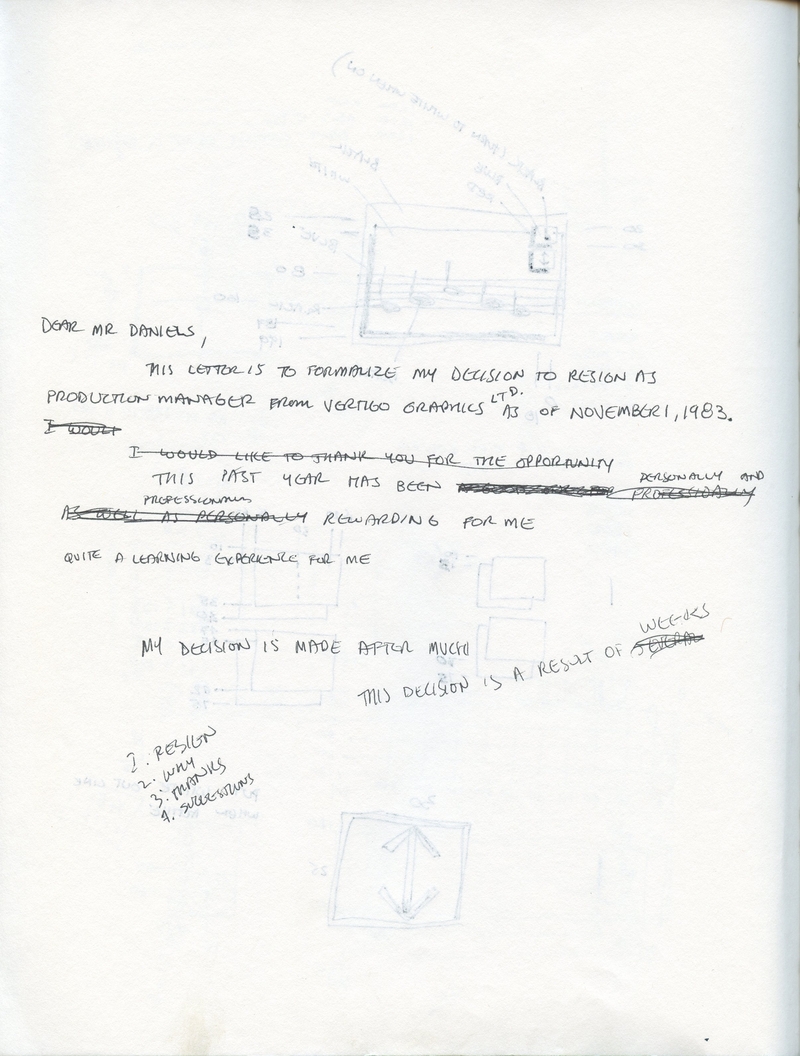 DEAR MR DANIELS,
THIS LETTER IS TO FORMALIZE MY DECISION TO RESIGN AS
PRODUCTION MANAGER FROM VERTIGO GRAPHICS LTD. AS OF NOVEMBER 1, 1983.
I WOULT
I WOULD LIKE TO THANK YOU FOR THE OPPORTUNITY
THIS PAST YEAR HAS BEEN PERSONALLY AND PROFESSIONALLY
PROFESSIONALLY
AS WELL AS PERSONALLY REWARDING FOR ME
QUITE A LEARNING EXPERIENCE FOR ME
MY DECISION IS MADE AFTER MUCH
WEEKS
THIS DECISION IS A RESULT OF SEVERAL
1. RESIGN
2. WHY
3. THANKS
4. SUGGESTIONS